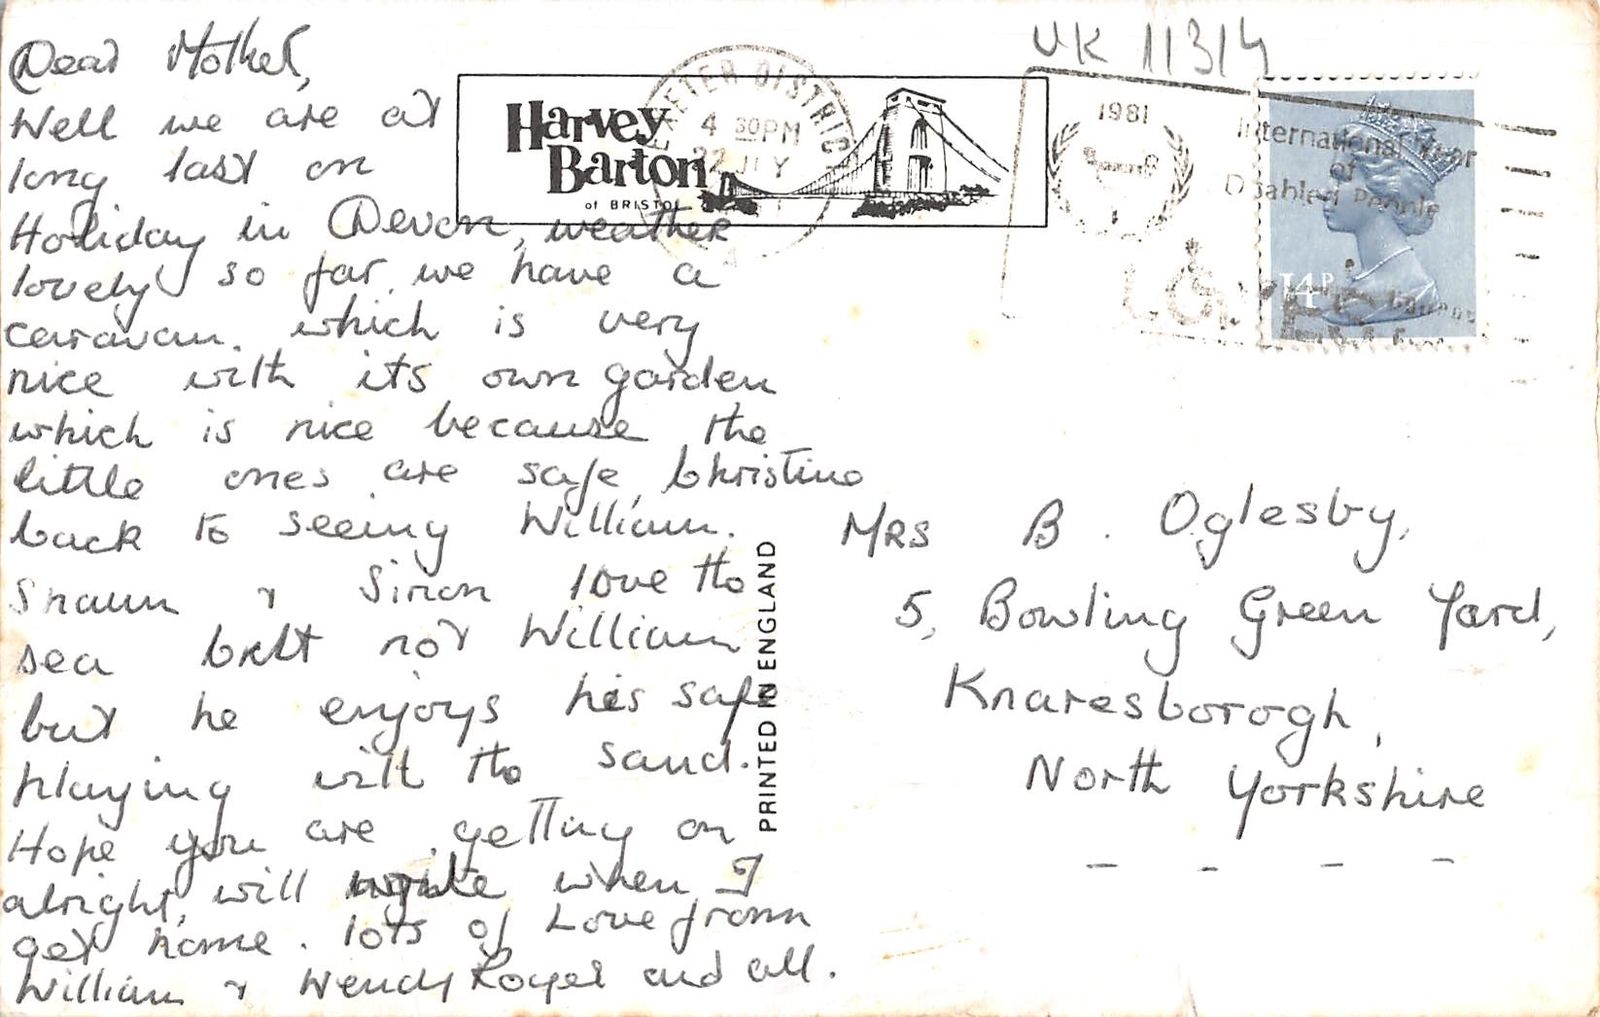 Dear Mother,
Well we are at
long last on
Holiday in Devon, weather
lovely so far, we have a
caravan. which is very
nice with its own garden,
which is nice because the
little ones are safe, Christine
back to seeing William.
Shaun & Simon love the
sea but not William
but he enjoys his safe
playing with the sand.
Hope you are getting on
alright, will write when I
get home. lots of Love from
William & Wendy Royel and all.
Harvey
Barton
of BRISTOL
EXETER DISTRICT
4 30PM
22 JLY
UK 11314
1981
International Year
of
Disabled People
14P
PRINTED IN ENGLAND
MRS B. Oglesby,
5, Bowling Green Yard,
Knaresborogh,
North Yorkshire